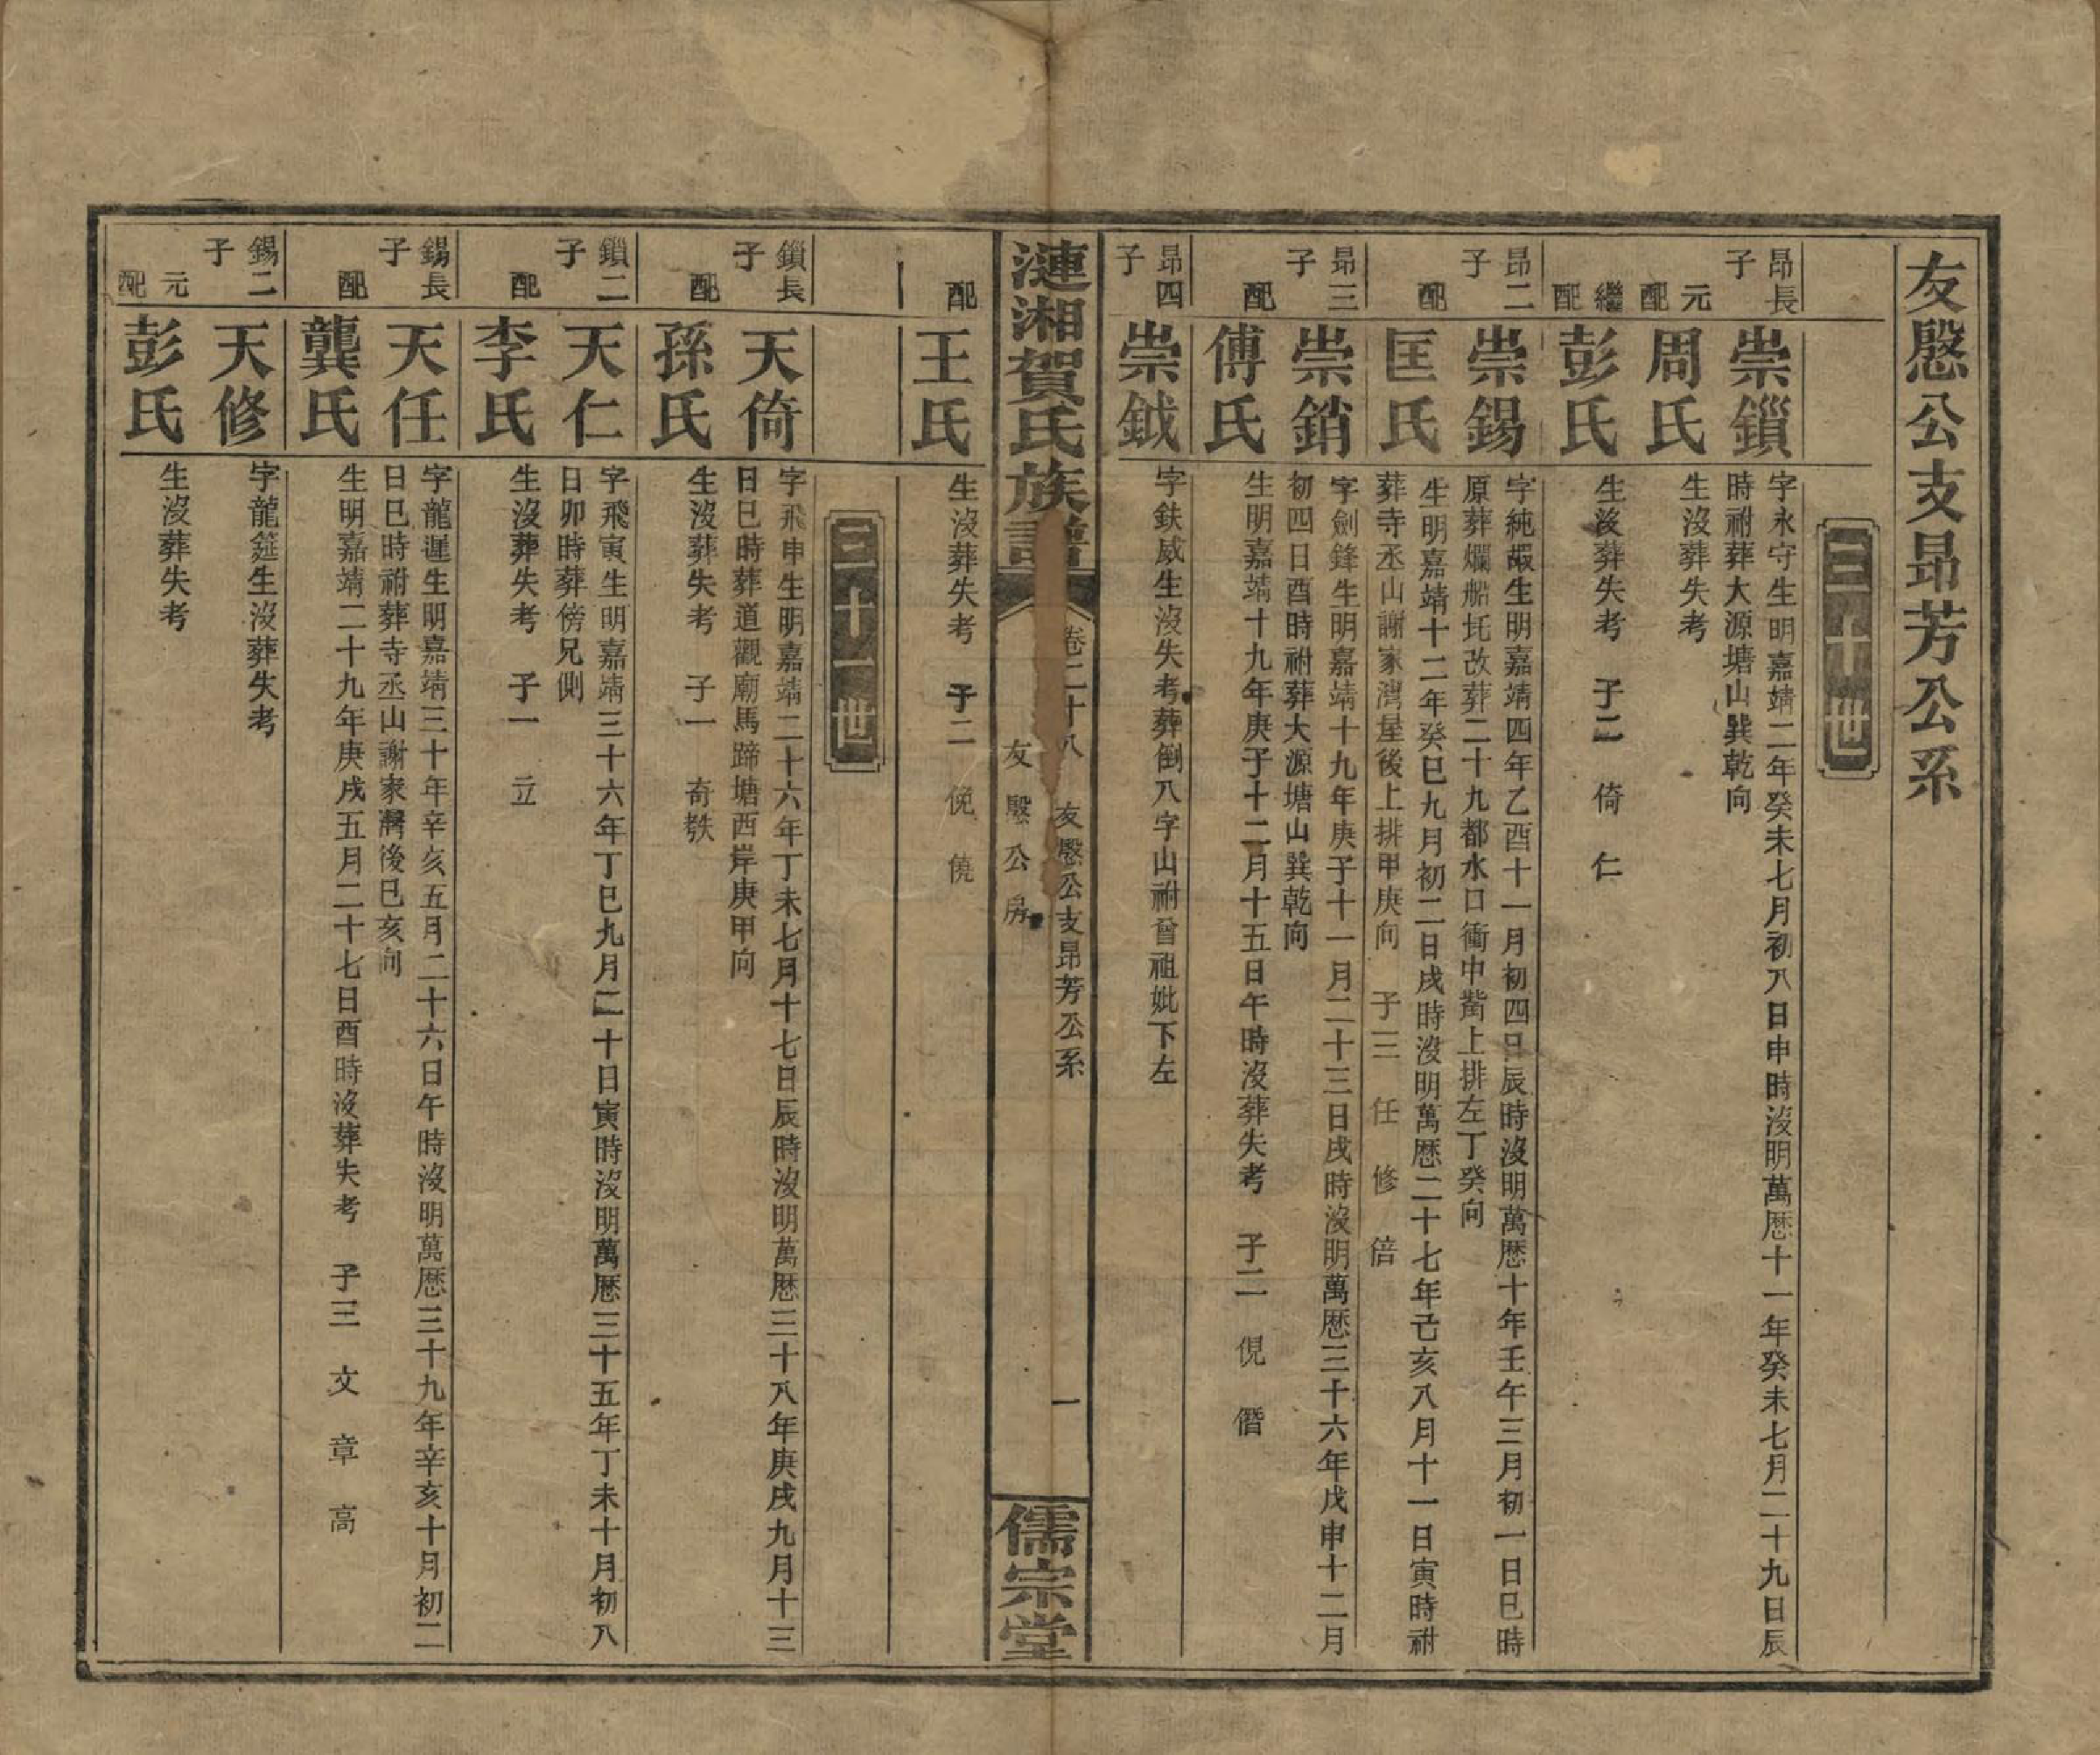 友慇公支昂芳公系
三十世
昂長子
崇鎻
字永守生明嘉靖二年癸未七月初八日申時沒明萬厯十一年癸未七月二十九日辰
時祔葬大源塘山巽乾向
元配
周氏
生沒葬失考
繼配
彭氏
生沒葬失考 子二 倚 仁
昂二子
崇錫
字純嘏生明嘉靖四年乙酉十一月初四日辰時沒明萬厯十年壬午三月初一日巳時
原葬爛船圫改葬二十九都水口衝中嵛上排左丁癸向
配
匡氏
生明嘉靖十二年癸巳九月初二日戌時沒明萬厯二十七年己亥八月十一日寅時祔
葬寺丞山謝家灣屋後上排甲庚向 子三 任 修 倍
昂三子
崇銷
字劍鋒生明嘉靖十九年庚子十一月二十三日戌時沒明萬厯三十六年戊申十二月
初四日酉時祔葬大源塘山巽乾向
配
傅氏
生明嘉靖十九年庚子十二月十五日午時沒葬失考 子二 倪 僭
昂四子
崇鉞
字鈇威生沒失考葬倒八字山祔曾祖妣下左
漣湘賀氏族譜
卷二十八
友慇公支昂芳公系
友慇公房
一
儒宗堂
配
王氏
生沒葬失考 子二 俛 僥
三十一世
鎻長子
天倚
字飛申生明嘉靖二十六年丁未七月十七日辰時沒明萬厯三十八年庚戌九月十三
日巳時葬道觀廟馬蹄塘西岸庚甲向
配
孫氏
生沒葬失考 子一 奇㪟
鎻二子
天仁
字飛寅生明嘉靖三十六年丁巳九月二十日寅時沒明萬厯三十五年丁未十月初八
日卯時葬傍兄側
配
李氏
生沒葬失考 子一 立
錫長子
天任
字龍遲生明嘉靖三十年辛亥五月二十六日午時沒明萬厯三十九年辛亥十月初二
日巳時祔葬寺丞山謝家灣後巳亥向
配
龔氏
生明嘉靖二十九年庚戌五月二十七日酉時沒葬失考 子三 文 章 高
錫二子
天修
字龍筵生沒葬失考
元配
彭氏
生沒葬失考